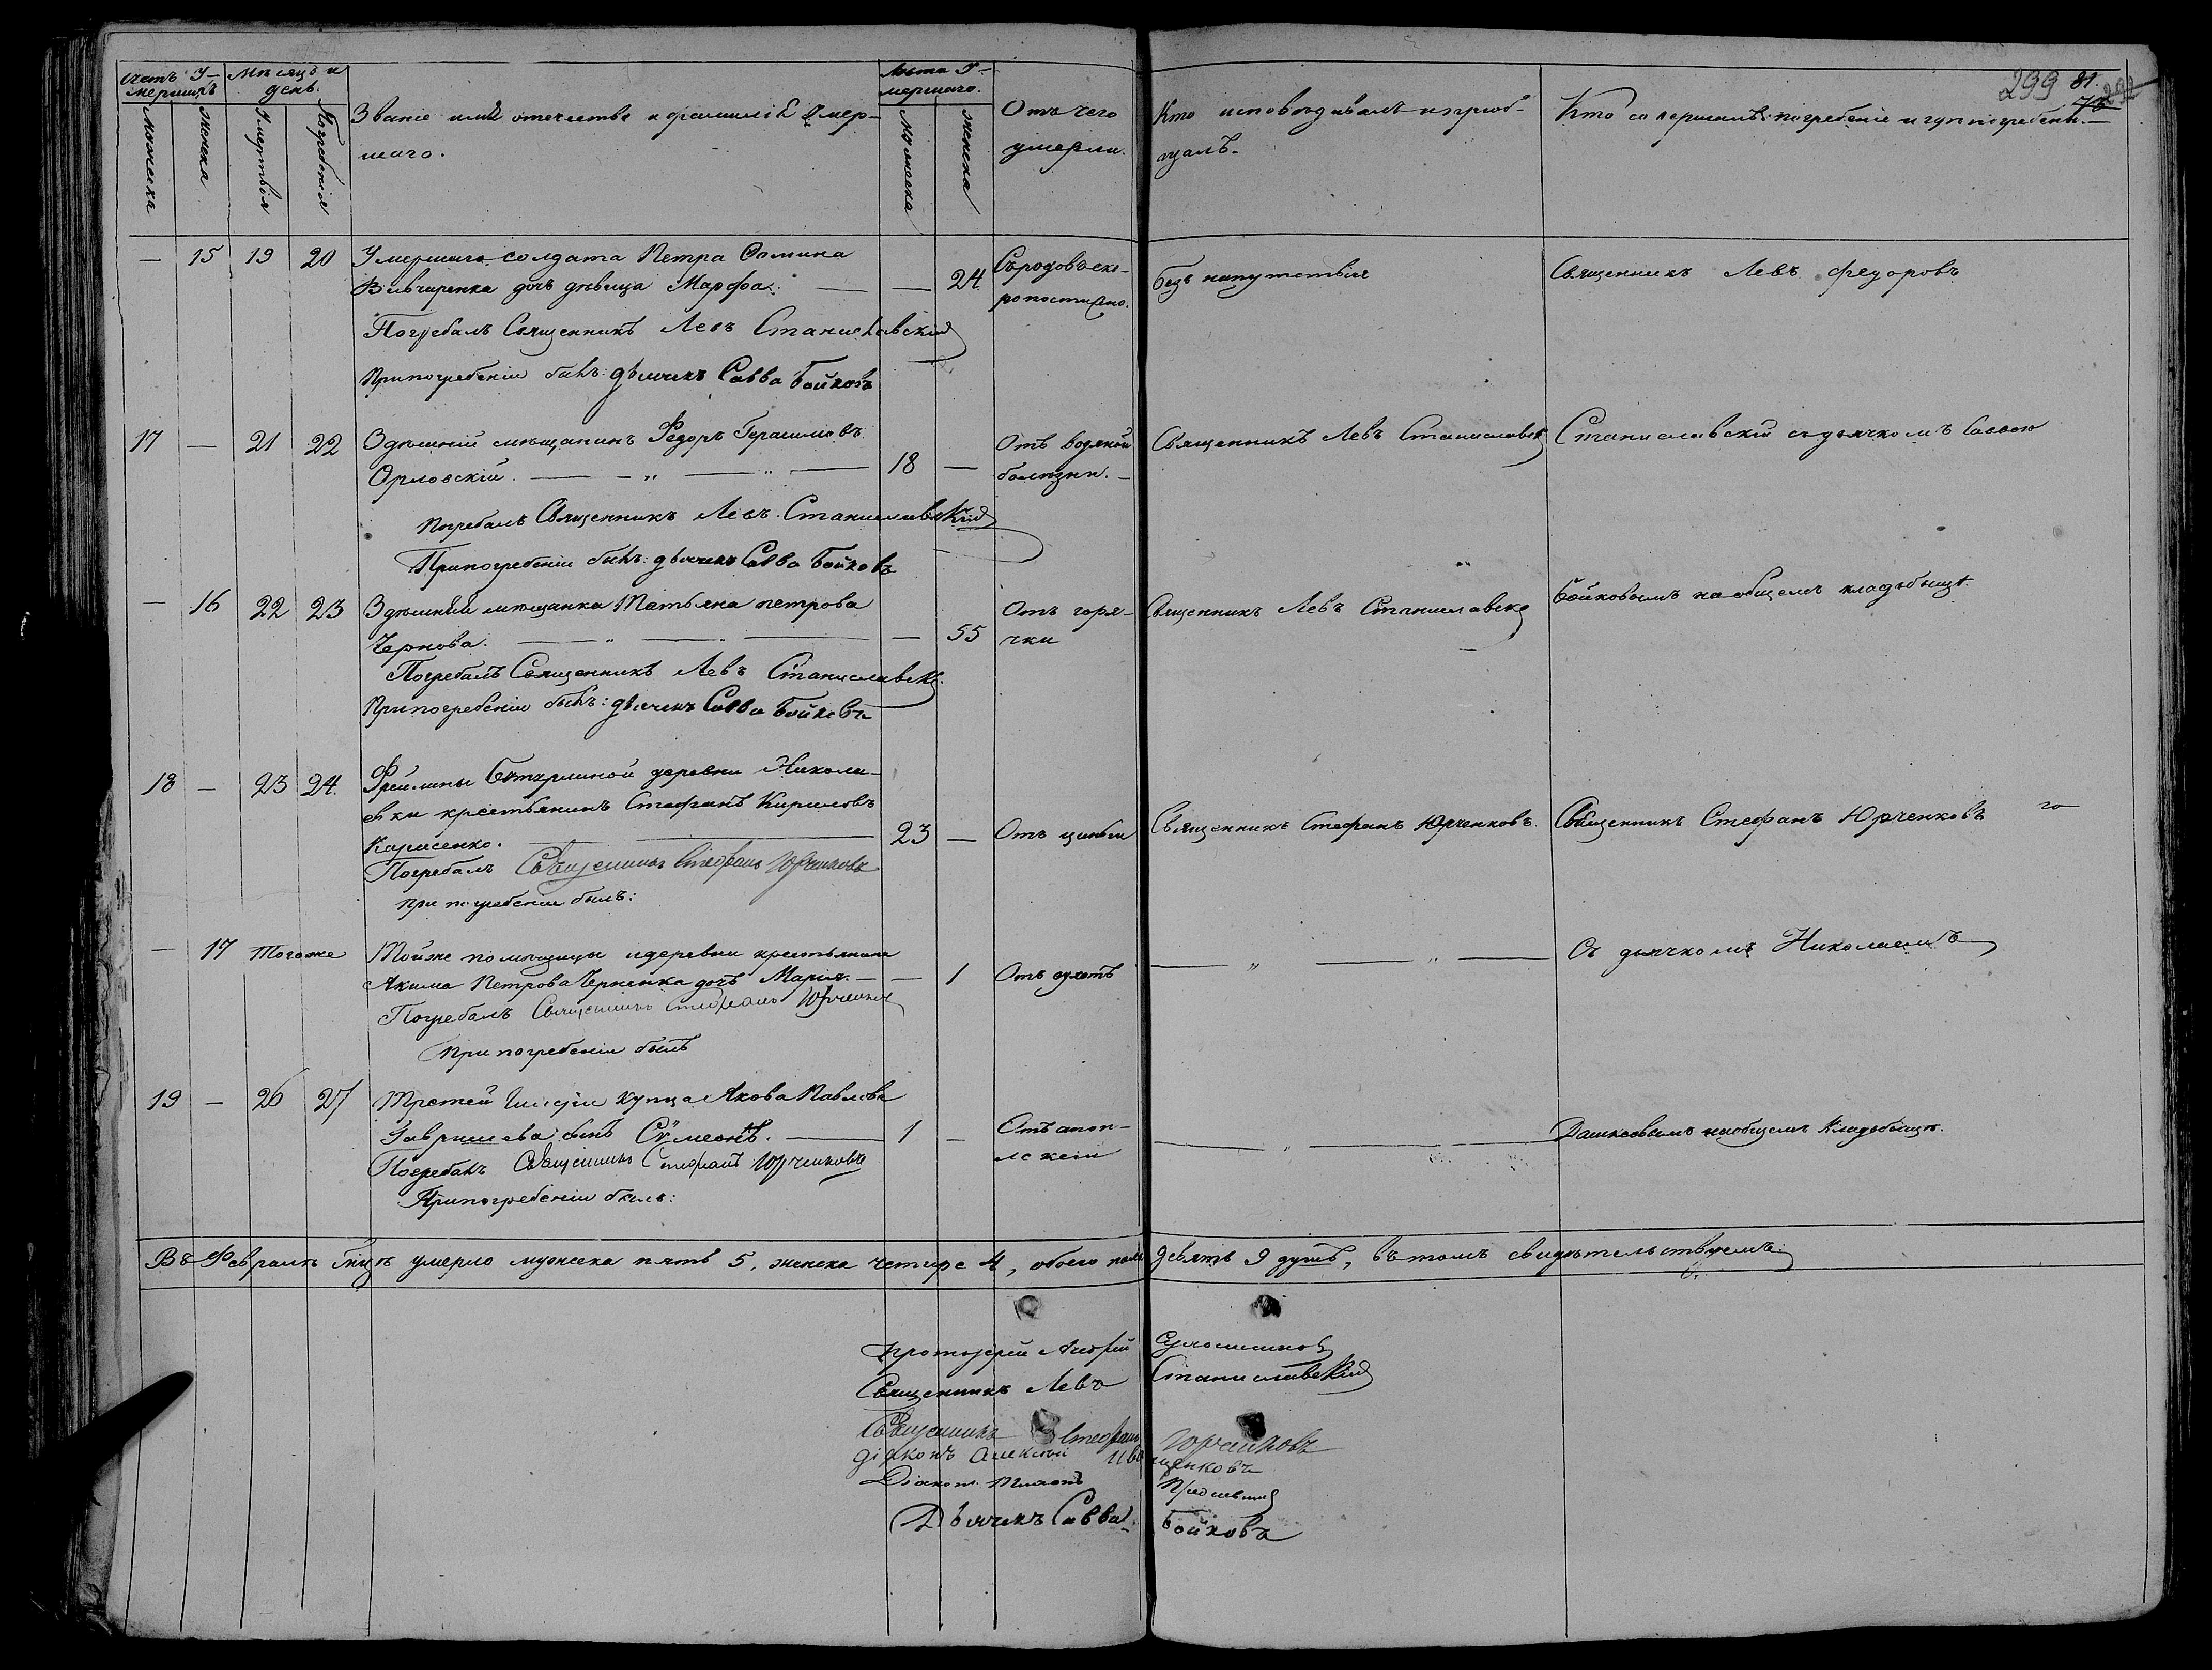 299 81.
Счетъ У-
мершихъ
Мѣсяцъ и
день.
мужеска
женска
Смертныя
Погребенія
Званіе имя отечество и фамиліе Умер-
шаго.
Лѣта У-
мершаго.
мужеска
женска
Отъ чего
умерли.
Кто исповѣдывалъ и пріоб-
щалъ.
Кто совершалъ погребеніе и гдѣ погребены.
— 15 19 20 Умершаго солдата Петра Фомина
дочь дѣвица Марфа. — — 24 Съ родовъ ско-
ропостижно.
безъ напутствія
Священникъ Левъ Федоровъ
Погребалъ Священникъ Левъ Станиславскій
При погребеніи былъ: дьячекъ Савва Бойковъ
17 — 21 22 Здѣшній мѣщанинъ Федоръ Герасимовъ
Орловскій. 18 — Отъ водяной
болѣзни.
Священникъ Левъ Станиславскій
Станиславскій съ дьячкомъ Саввою
Погребалъ Священникъ Левъ Станиславскій
При погребеніи былъ: дьячекъ Савва Бойковъ
— 16 22 23 Здѣшняя мѣщанка Татьяна Петрова
Чернова. — 55 Отъ горя-
чки
Священникъ Левъ Станиславскій
Бойковымъ на общемъ кладбищѣ.
Погребалъ Священникъ Левъ Станиславскій
При погребеніи былъ: дьячекъ Савва Бойковъ
18 — 23 24. Фрейлины деревни Никола-
евки крестьянинъ Стефанъ Кириловъ
Карасенко. 23 — Отъ цынги
Священникъ Стефанъ Юрченковъ.
Священникъ Стефанъ Юрченковъ
Погребалъ Священникъ Стефанъ Юрченковъ
При погребеніи былъ:
— 17 Того же Тойже помѣщицы и деревни крестьянина
Акима Петрова Черненка дочь Марія. — — 1 Отъ сухотъ
Съ дьячкомъ Николаемъ
Погребалъ Священникъ Стефанъ Юрченковъ
При погребеніи былъ
19 — 26 27 Третей Гильдіи купца Якова Павлова
Гаврилева сынъ Сѵмеонъ. — 1 — Отъ апоп-
лексіи
Дашковымъ на общемъ кладбищѣ.
Погребалъ Священникъ Стефанъ Юрченковъ
При погребеніи былъ:
Въ Февралѣ м-цѣ умерло мужеска пять 5, женска четыре 4, обоего пола девять 9 душъ, въ томъ свидѣтельствуемъ:
Протоіерей Андрей
Священникъ Левъ Станиславскій
Священникъ Стефанъ Юрченковъ
Діяконъ Алексѣй Иващенковъ
Діаконъ
Дьячекъ Савва Бойковъ